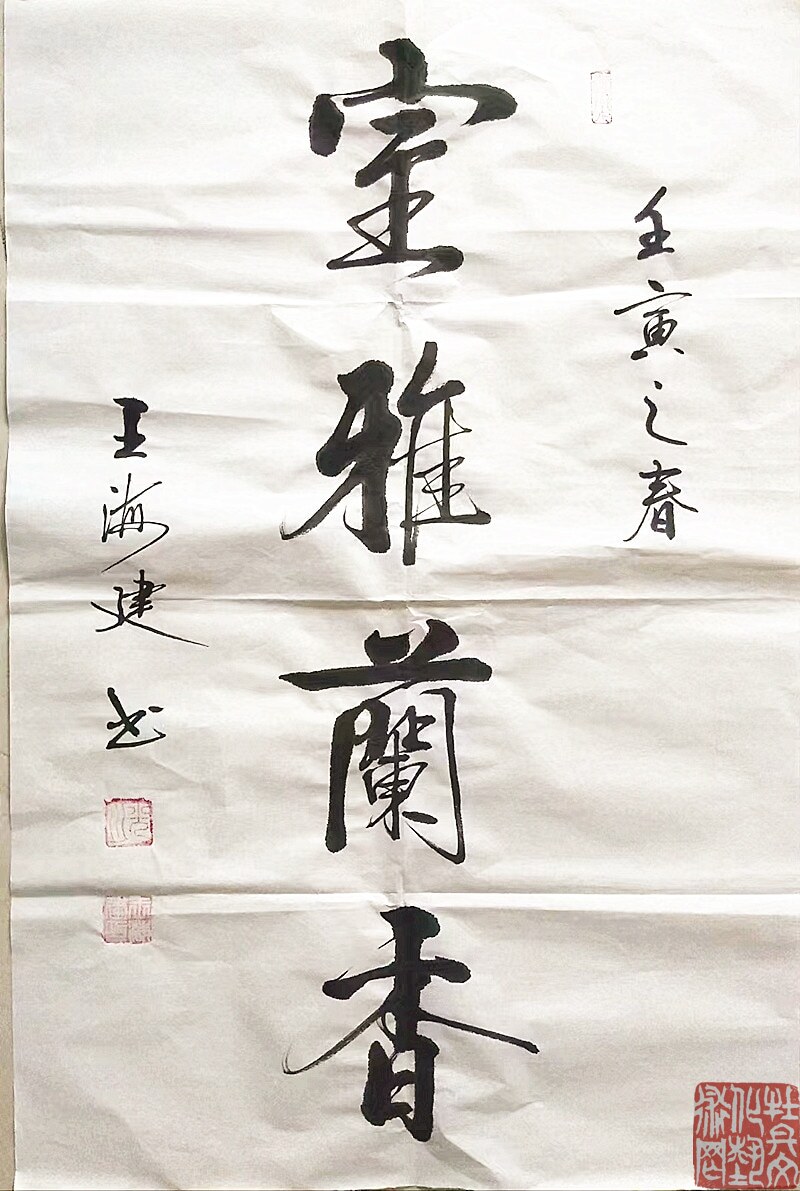 壬寅之春
室雅蘭香
王海建书